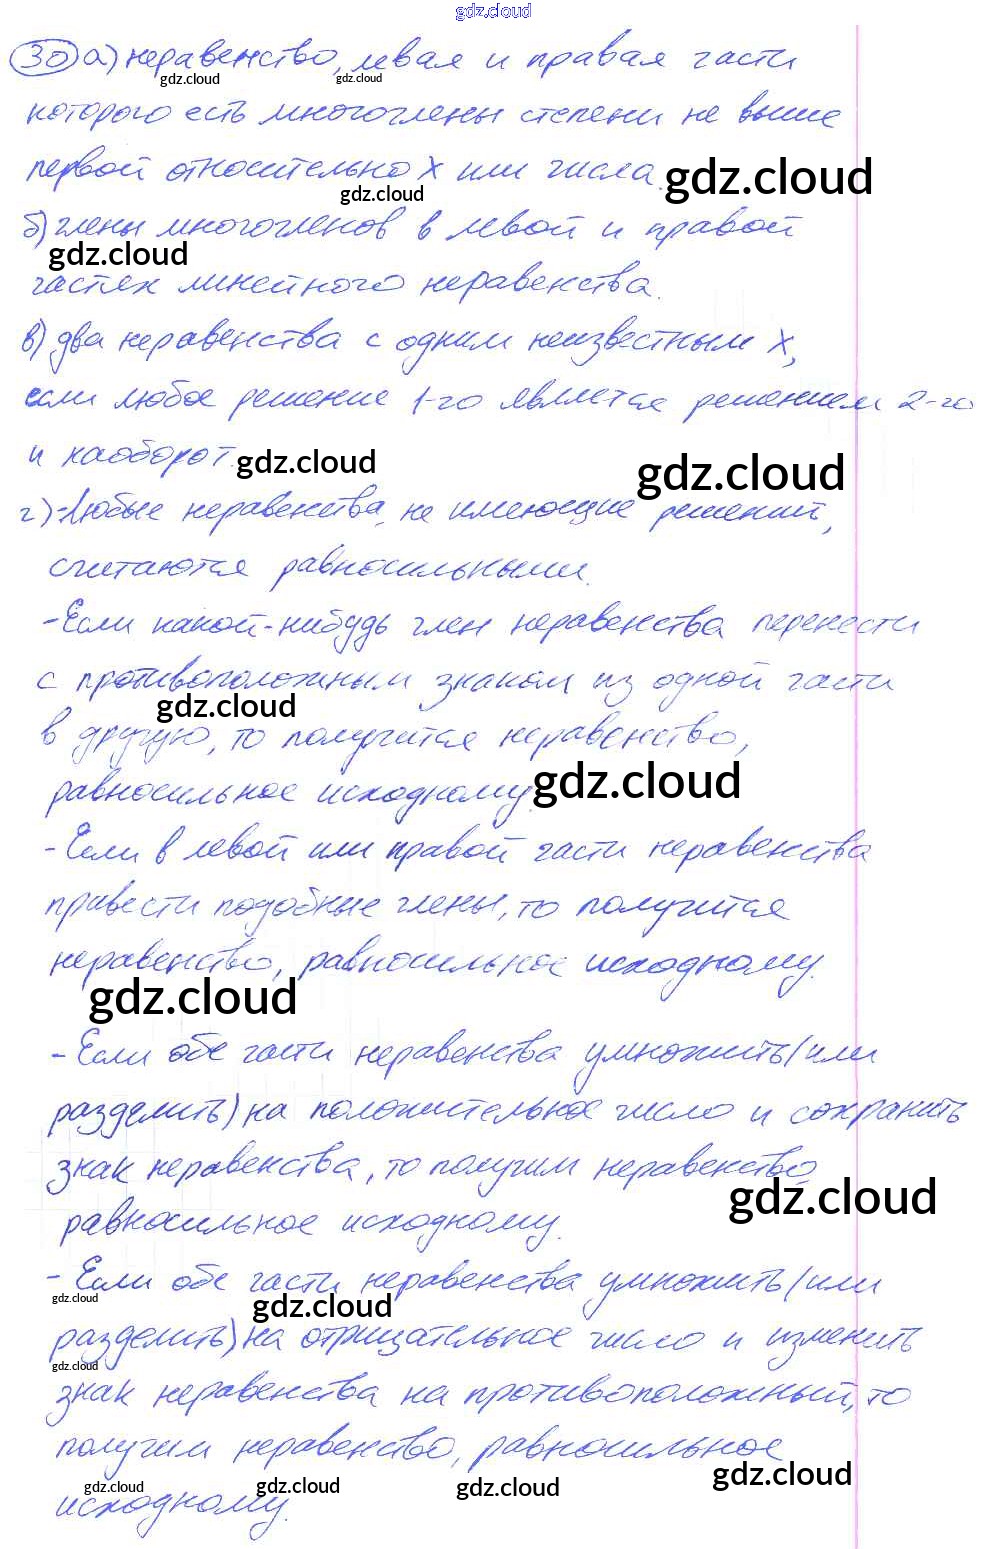 gdz.cloud
30 а) неравенство, левая и правая части
gdz.cloud gdz.cloud
которого есть многочлены степени не выше
первой относительно x или числа.
gdz.cloud gdz.cloud
б) члены многочленов в левой и правой
gdz.cloud
частях линейного неравенства.
в) два неравенства с одним неизвестным x,
если любое решение 1-го является решением 2-го
и наоборот.
gdz.cloud gdz.cloud
г) -Любые неравенства, не имеющие решений,
считаются равносильными.
-Если какой-нибудь член неравенства перенести
с противоположным знаком из одной части
gdz.cloud
в другую, то получится неравенство,
равносильное исходному.
gdz.cloud
-Если в левой или правой части неравенства
привести подобные члены, то получится
неравенство, равносильное исходному.
gdz.cloud
-Если обе части неравенства умножить (или
разделить) на положительное число и сохранить
знак неравенства, то получим неравенство
gdz.cloud
равносильное исходному.
-Если обе части неравенства умножить (или
gdz.cloud gdz.cloud
разделить) на отрицательное число и изменить
gdz.cloud
знак неравенства на противоположный, то
получим неравенство, равносильное
gdz.cloud
gdz.cloud gdz.cloud gdz.cloud
исходному.